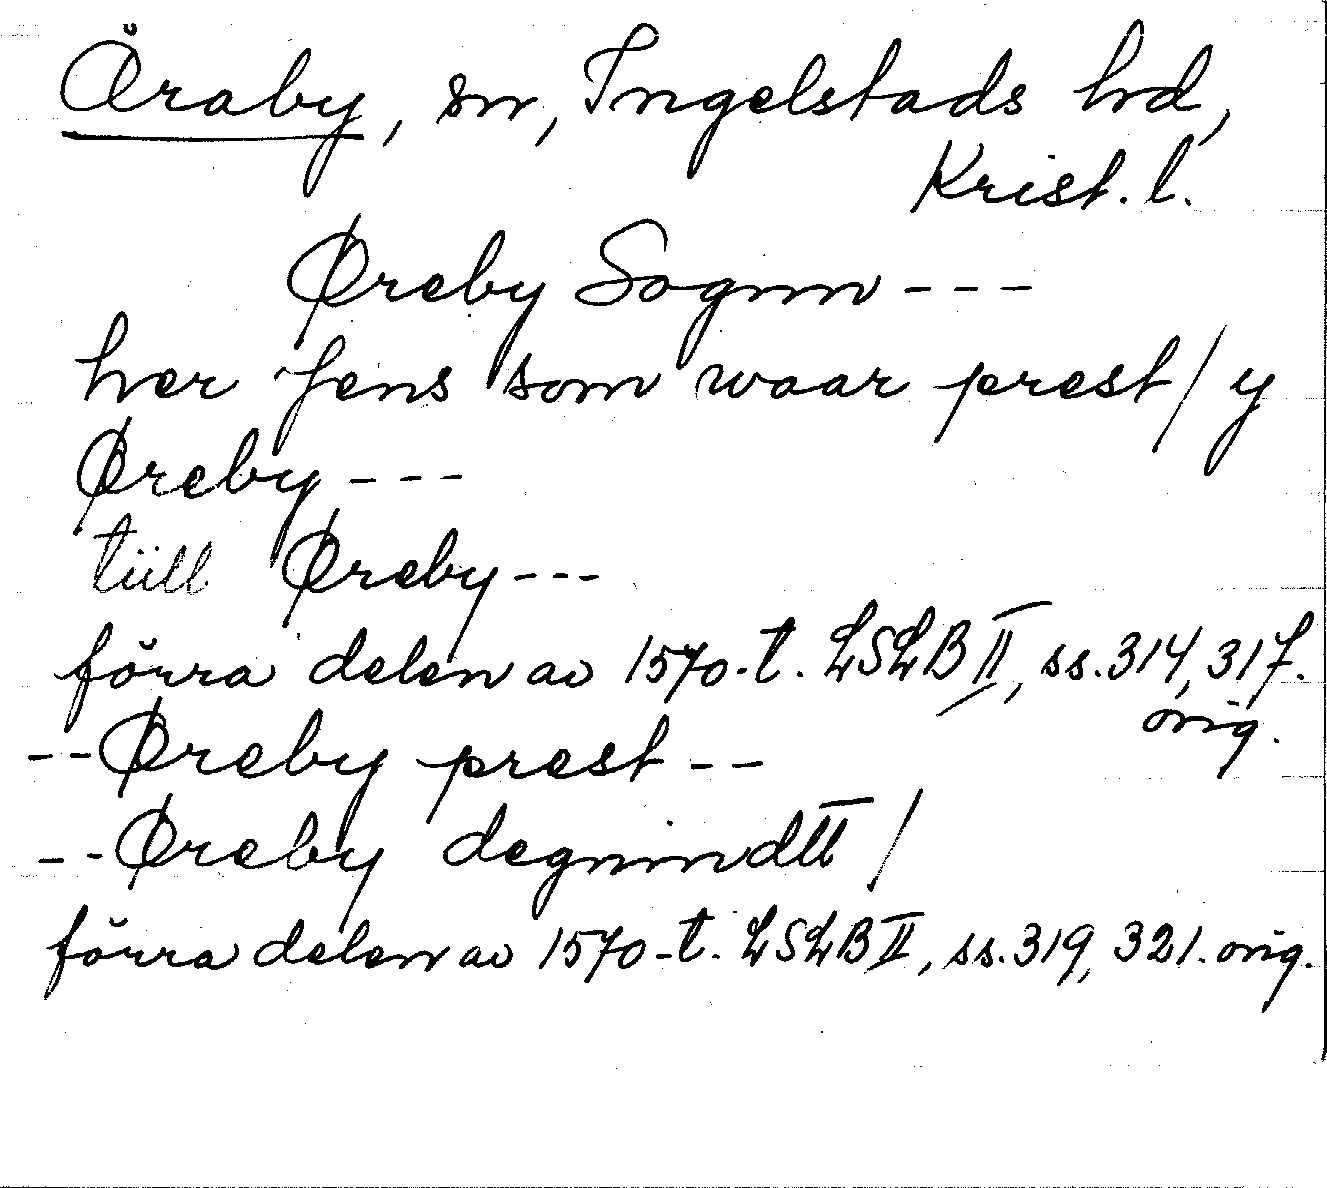 Öraby, sn, Ingelstads hd,
Krist. l.
Øreby Sognn ---
her Jens som waar prest / y
Øreby ---
tiill Øreby ---
förra delen av 1570-t. LSLB II, ss. 314, 317.
orig.
-- Øreby prest --
-- Øreby degnindtt /
förra delen av 1570-t. LSLB II, ss. 319, 321. orig.